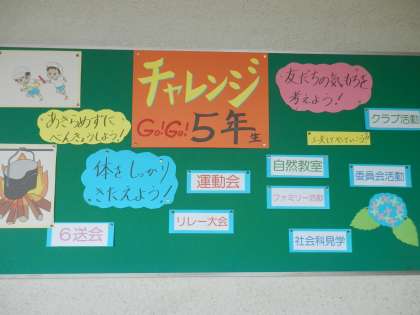 チャレンジ
Go!Go!5年生
友だちの気もちを
考えよう!
クラブ活動
あきらめずに
べんきょうしよう!
体をしっかり
きたえよう!
運動会
自然教室
委員会活動
ファミリー活動
リレー大会
6送会
社会科見学